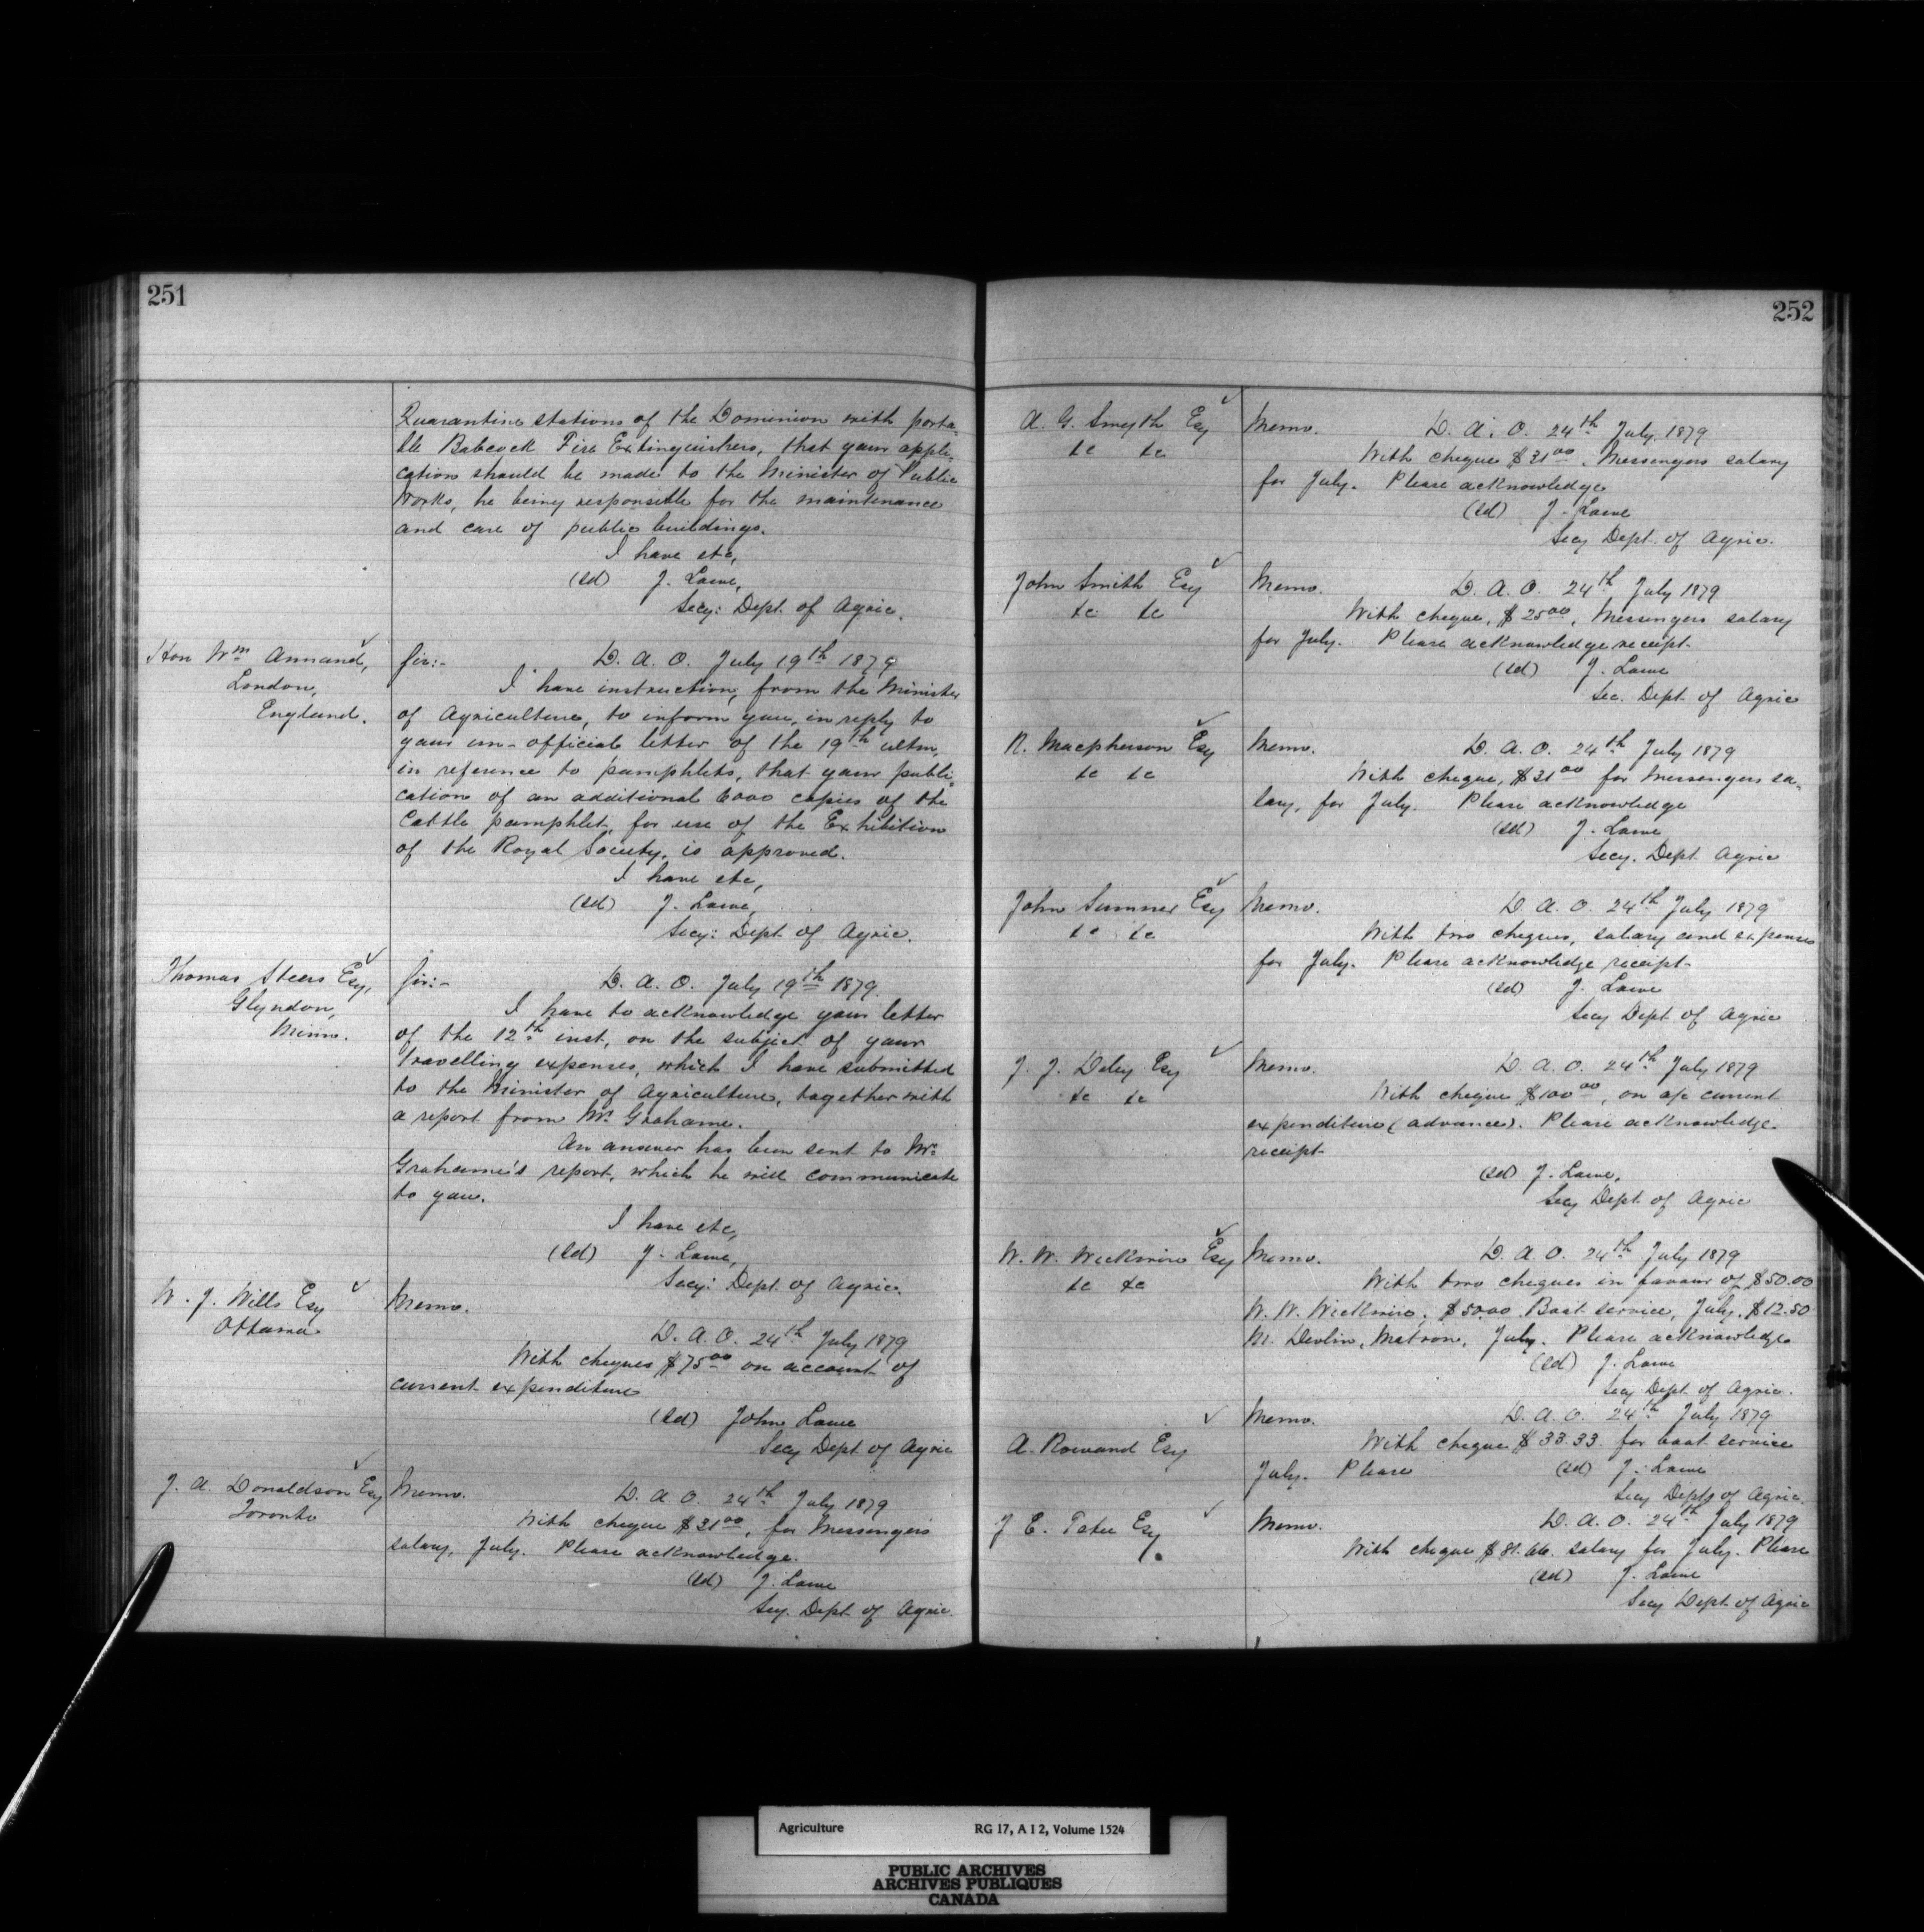 251
Quarantine stations of the Dominion with porta-
ble Babcock Fire Extinguishers, that your appli-
cation should be made to the Minister of Public
Works, he being responsible for the maintenance
and care of public buildings.
I have etc,
(sd) J. Lowe,
Secy: Dept. of Agric.
Hon Wm Annand,
London,
England.
Sir:- D. A. O. July 19th 1879
I have instruction, from the Minister
of Agriculture, to inform you, in reply to
your un-official letter of the 19th ultm,
in reference to pamphlets, that your publi-
cation of an additional 6000 copies of the
Cattle pamphlet, for use of the Exhibition
of the Royal Society, is approved.
I have etc,
(sd) J. Lowe,
Secy: Dept of Agric.
Thomas Steers Esq,
Glyndon,
Minn.
Sir:- D. A. O. July 19th 1879.
I have to acknowledge your letter
of the 12th inst, on the subject of your
travelling expenses, which I have submitted
to the Minister of Agriculture, together with
a report from Mr. Grahame.
An answer has been sent to Mr.
Grahame's report, which he will communicate
to you.
I have etc,
(sd) J. Lowe,
Secy: Dept. of Agric.
W. J. Wills Esq
Ottawa.
Memo.
D. A. O. 24th July 1879
With cheques $75.00 on account of
current expenditure
(sd) John Lowe
Secy Dept. of Agric
J. A. Donaldson Esq
Toronto
Memo.
D. A. O. 24th July 1879
With cheque $31.00, for Messengers
salary, July. Please acknowledge.
(sd) J. Lowe
Secy. Dept. of Agric.
252
A. G. Smyth Esq
&c &c
Memo. D. A. O. 24th July, 1879
With cheque $31.00. Messengers salary
for July. Please acknowledge
(sd) J. Lowe
Secy Dept. of Agric.
John Smith Esq
&c &c
Memo. D. A. O. 24th July 1879
With cheque, $25.00, Messengers salary
for July. Please acknowledge receipt.
(sd) J. Lowe
Sec. Dept. of Agric
R. Macpherson Esq
&c &c
Memo. D. A. O. 24th July 1879
With cheque, $31.00 for Messengers sa-
lary, for July. Please acknowledge
(sd) J. Lowe
Secy. Dept. Agric
John Sumner Esq
&c &c
Memo. D. A. O. 24th July 1879
With two cheques, salary and expenses
for July. Please acknowledge receipt.
(sd) J. Lowe
Secy Dept. of Agric
J. J. Daley Esq
&c &c
Memo. D. A. O. 24th July 1879
With cheque $100.00, on a/c current
expenditure (advance). Please acknowledge
receipt
(sd) J. Lowe,
Secy Dept. of Agric
W. W. Wickwire Esq
&c &c
Memo. D. A. O. 24th July 1879
With two cheques in favour of $50.00
W. W. Wickwire, $50.00 Boat service, July. $12.50
M. Devlin, Matron, July. Please acknowledge
(sd) J. Lowe
Secy Dept. of Agric.
A. Rowand Esq
Memo. D. A. O. 24th July 1879
With cheque $33.33 for boat service
July. Please (sd) J. Lowe
Secy Dept of Agric.
J E. Tetu Esq.
Memo. D. A. O. 24th July 1879
With cheque $81.66. salary for July. Please
(sd) J. Lowe
Secy Dept. of Agric
Agriculture RG 17, A I 2, Volume 1524
PUBLIC ARCHIVES
ARCHIVES PUBLIQUES
CANADA